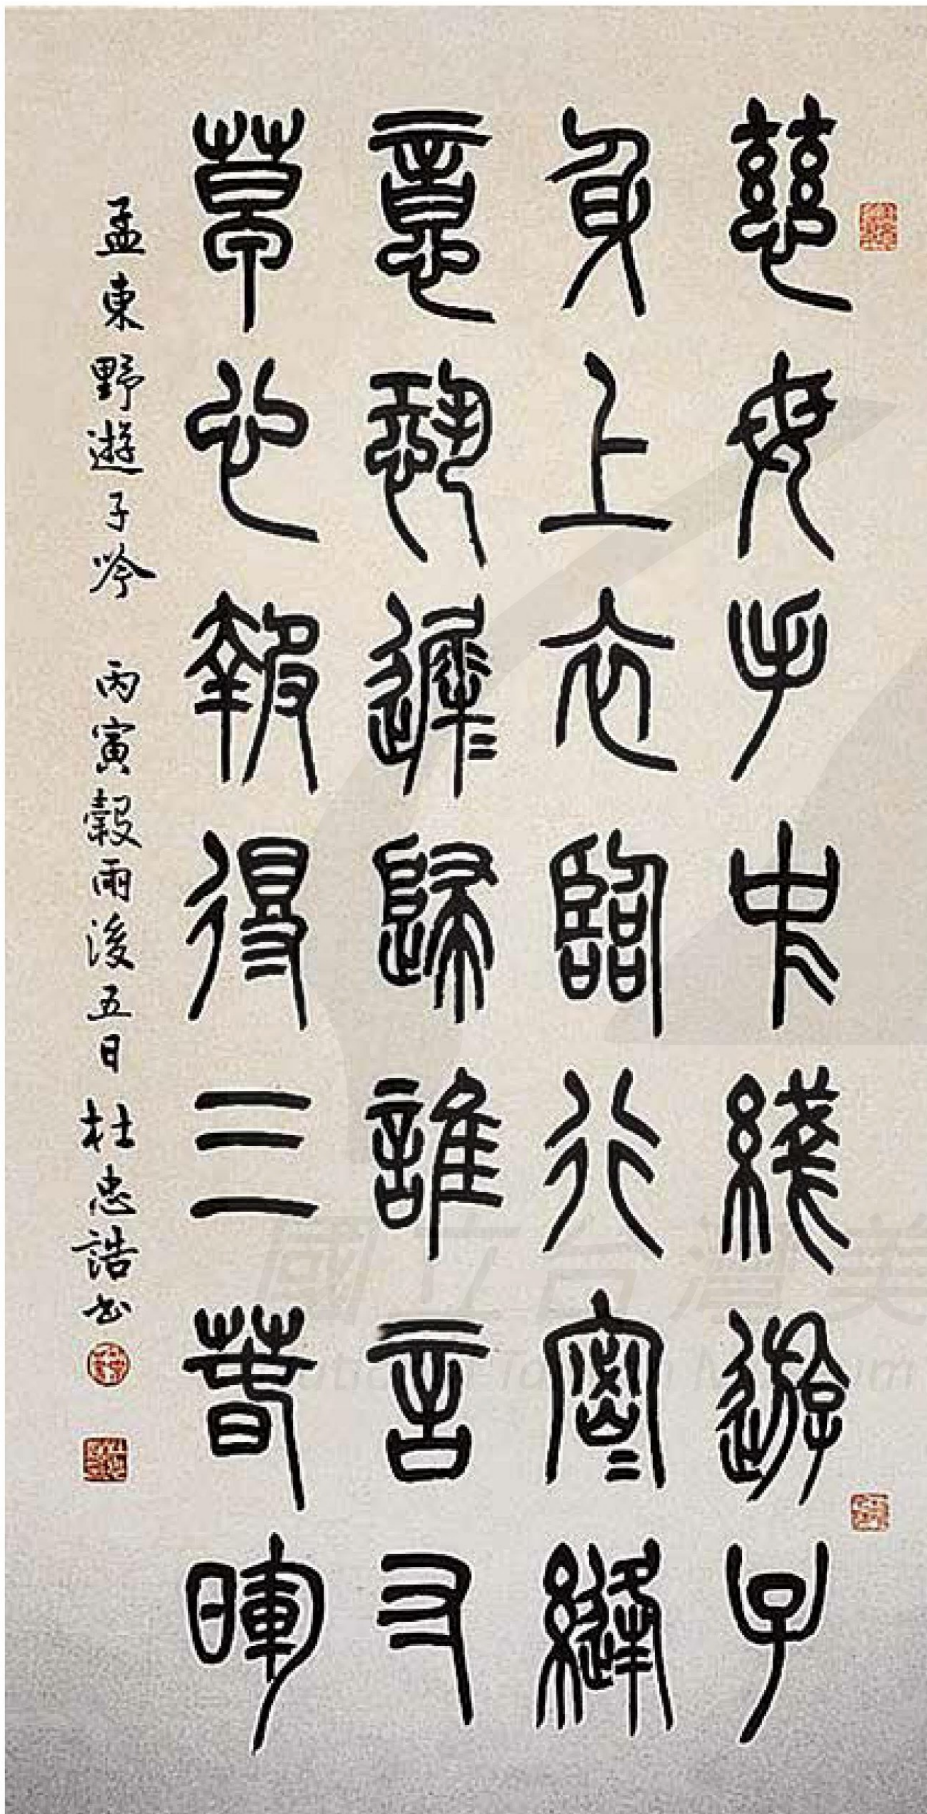 慈母手中綫遊子
身上衣臨行密〻縫
意恐遲〻歸誰言寸
草心報得三春暉
孟東野遊子吟 丙寅穀雨後五日 杜忠誥書
國立台灣美